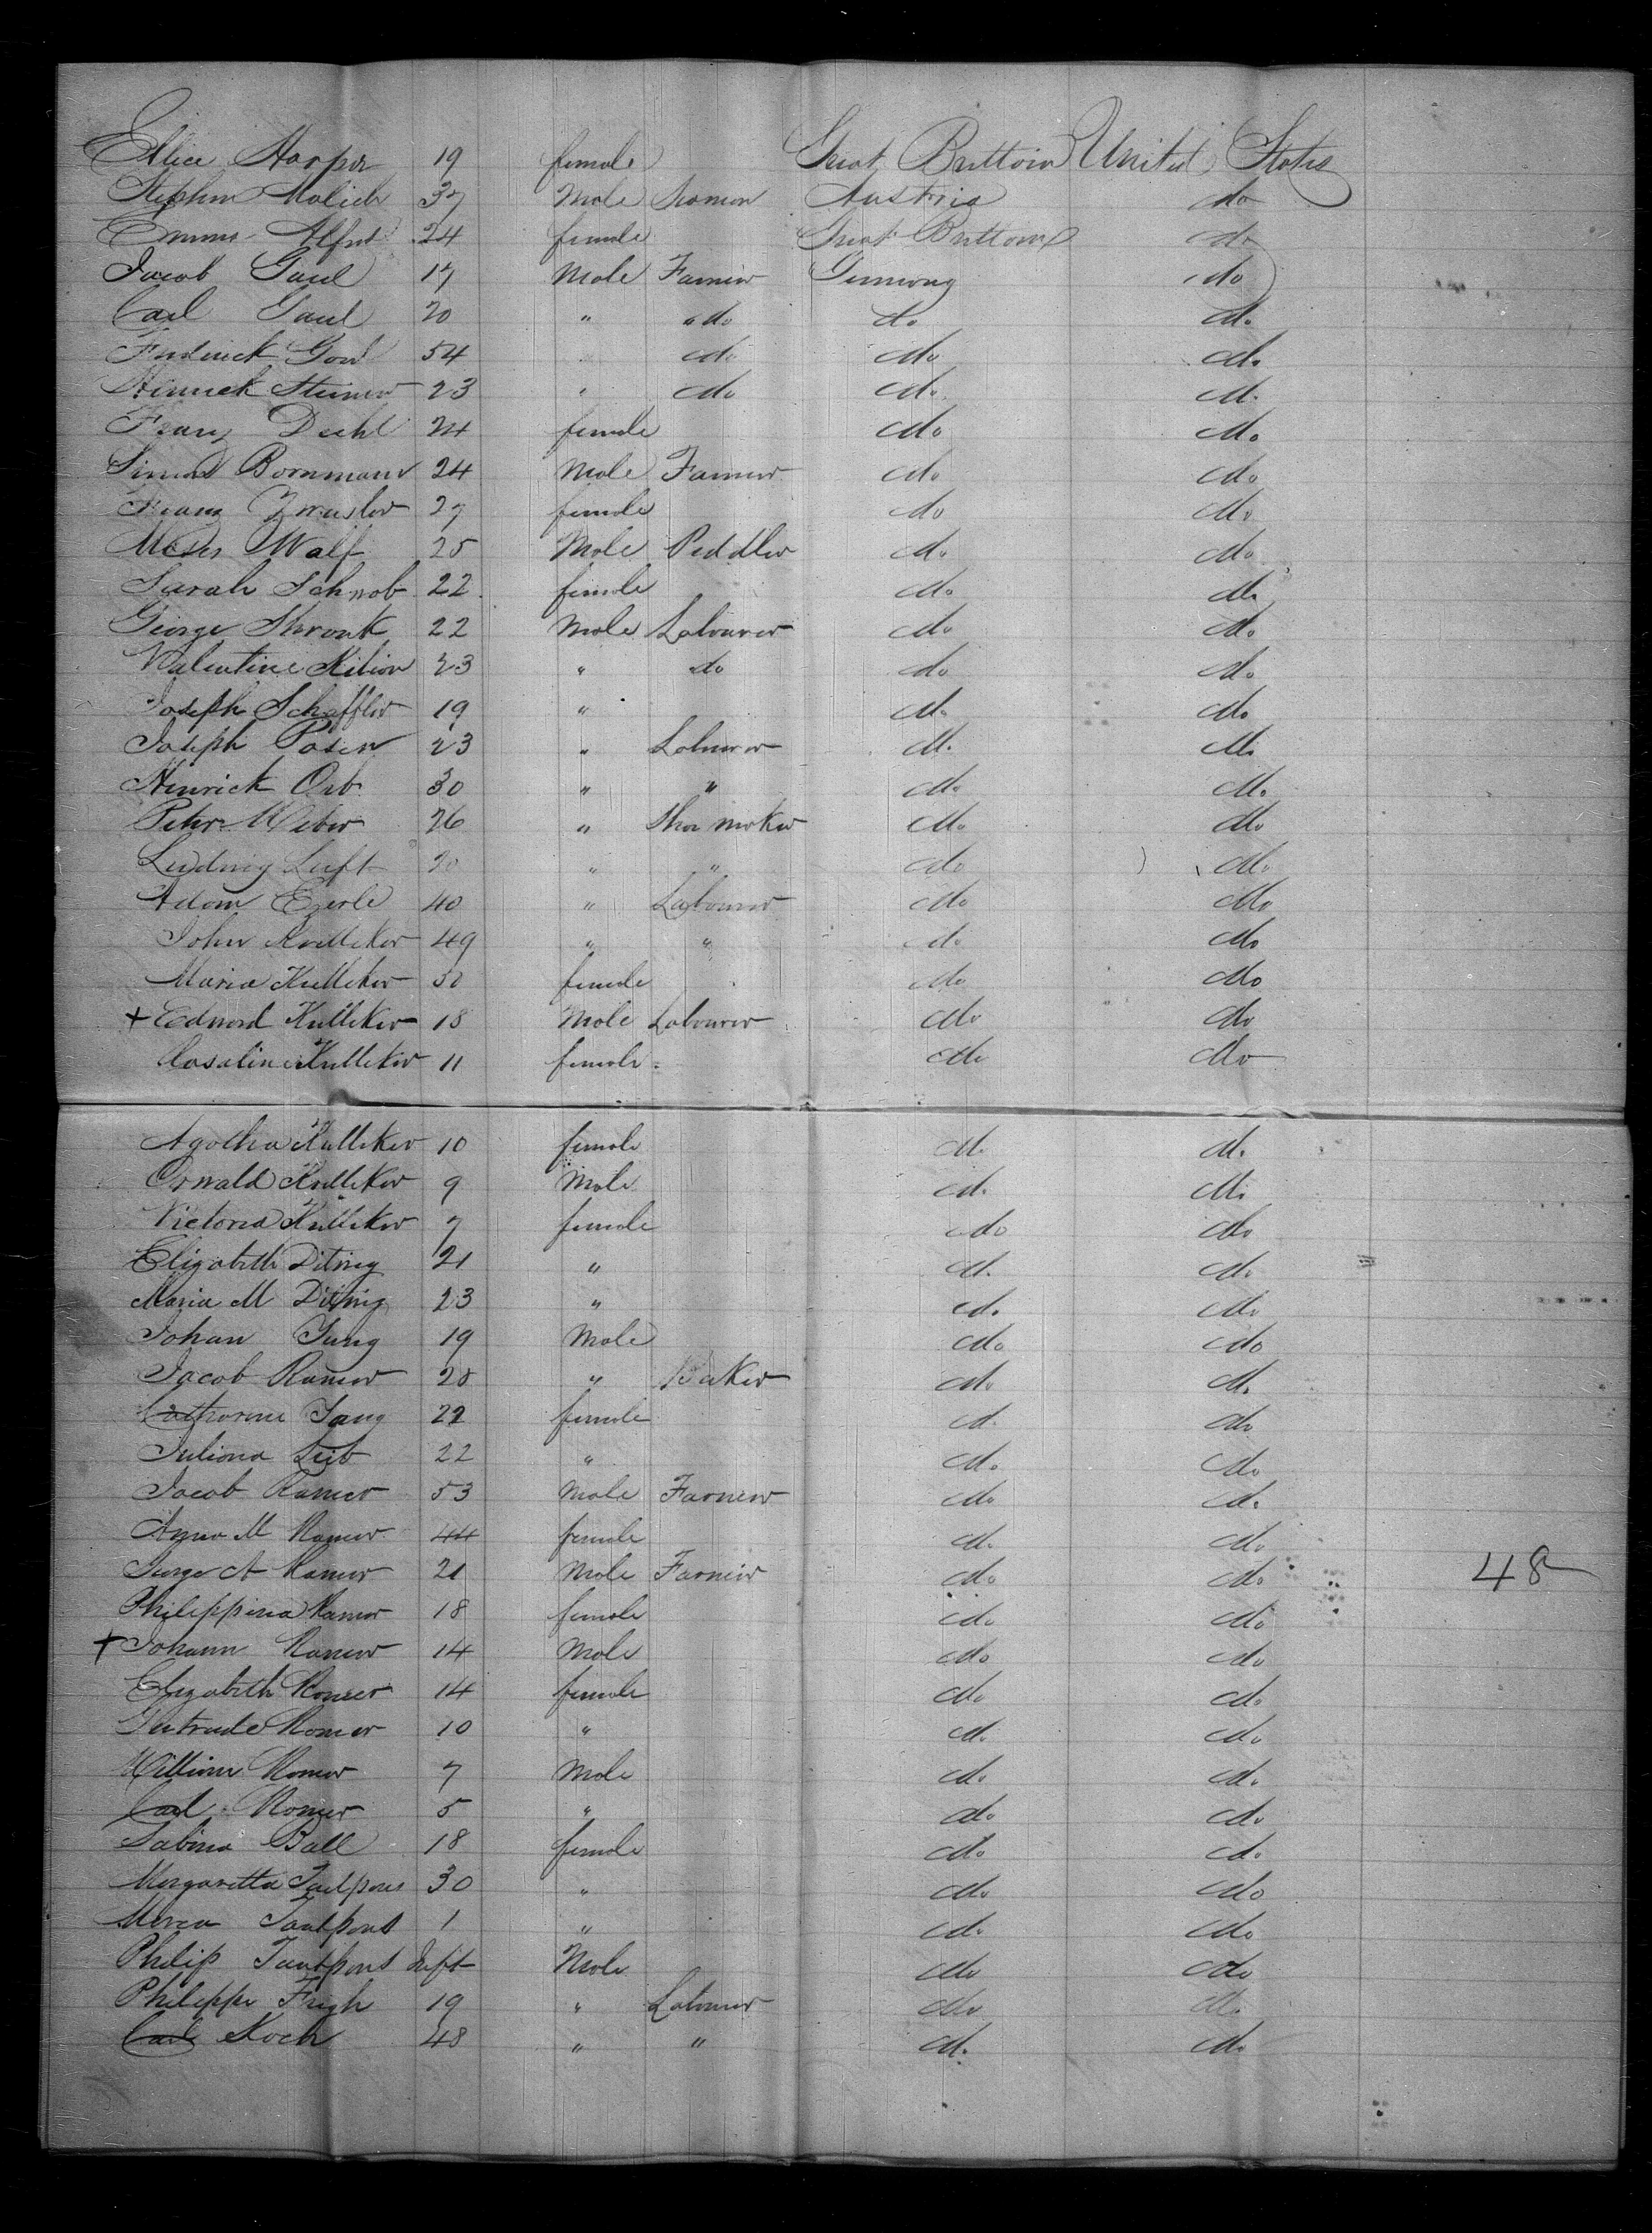 Alice Harper 19 female Great Brittain United States
Stephen Malich 37 Male Seaman Austria do
Emma Alfred 24 female Great Brittain do
Jacob Gaul 17 Male Farmer Germany do
Carl Gaul 20 " " do do do
Frederick Gaul 54 do do do
Hinrick Steiner 23 " do do do
Franz Diehl 24 female do do
Simon Bornmann 24 Male Farmer do do
Franz 27 female do do
Moses Walf 25 Male Peddler do do
Sarah Schnob 22 female do do
George Shronk 22 Male Labourer do do
Valentine Kilian 23 " do do do
Joseph Schaffler 19 " do do
Joseph Poser 23 " Labourer do do
Hinrick Orb 30 " " do do
Peter Weber 26 " Shoe maker do do
Ludwig Luft 20 " " do do
Adam Eberle 40 " Labourer do do
John Kulleker 49 " " do do
Maria Kulleker 50 female do do
+ Edward Kulleker 18 Male Labourer do do
Rosaline Kulleker 11 female do do
Agatha Kulleker 10 female do do
Oswald Kulleker 9 Male do do
Victoria Kulleker 7 female do do
Elizabeth 21 " do do
Maria M 23 " do do
Johan Jung 19 Male do do
Jacob Ramer 28 " Baker do do
Catharine Jang 22 female do do
Juliana Leib 22 " do do
Jacob Ramer 53 Male Farmer do do
Anna M Ramer 44 female do do
George A Ramer 21 Male Farmer do do 48
Philippina Ramer 18 female do do
+ Johann Ramer 14 Male do do
Elizabeth Ramer 14 female do do
Gertrude Ramer 10 " do do
William Ramer 7 Male do do
Carl Ramer 5 " do do
Sabina Ball 18 female do do
Margaretta Tautpous 30 " do do
Maria Tautpous 1 " do do
Philip Tautpous Inft Male do do
Philippe Frigh 19 " Labourer do do
Carl Koch 48 " " do do